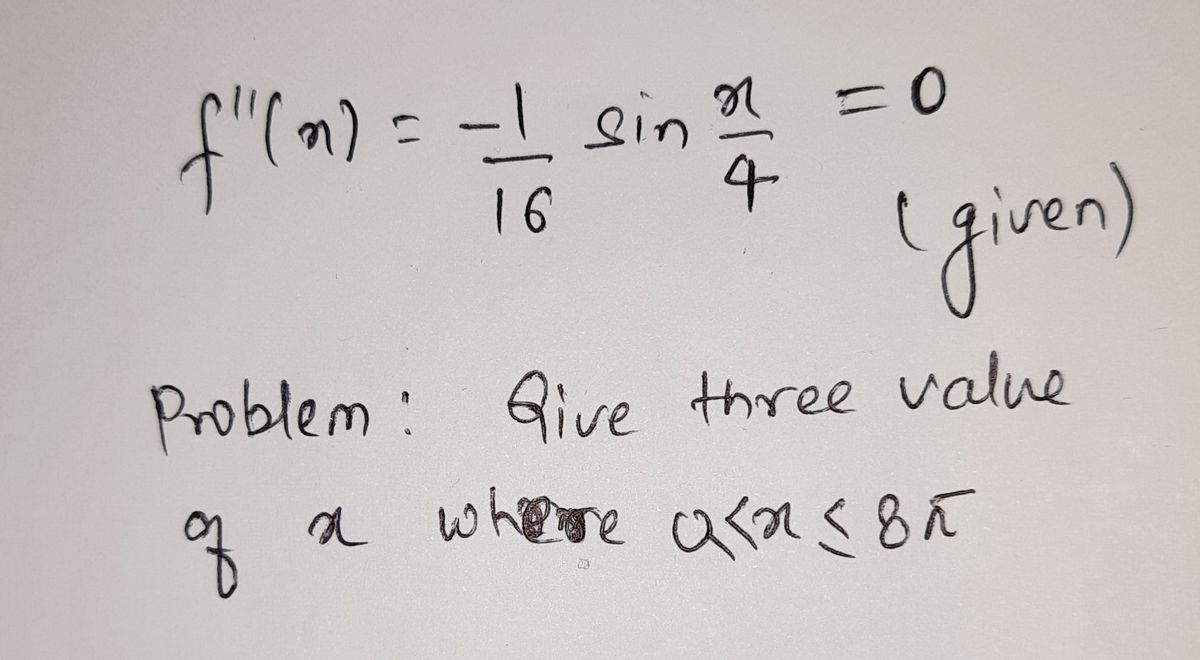 f''(x) = -1/16 sin x/4 = 0
(given)
Problem: Give three value
of x where 0<x≤8π